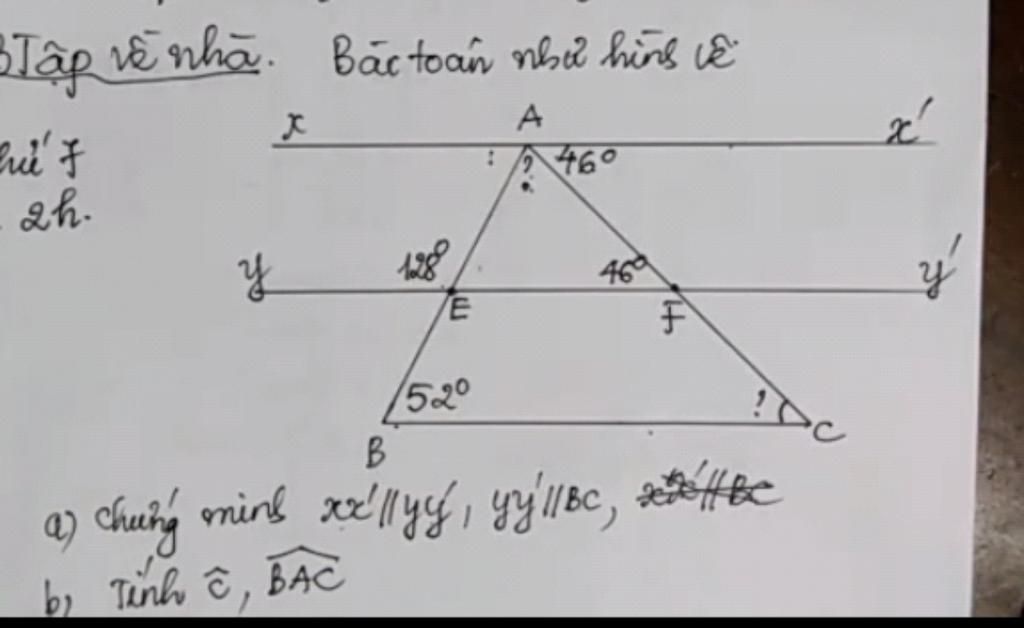 BTập về nhà. Bài toán như hình vẽ
thứ 7
2h.
x A x'
? 46°
y 128° 46° y'
E F
52° ?
B C
a) chứng minh xx'//yy', yy'//BC, xx'//BC
b) Tính ĉ, BAC